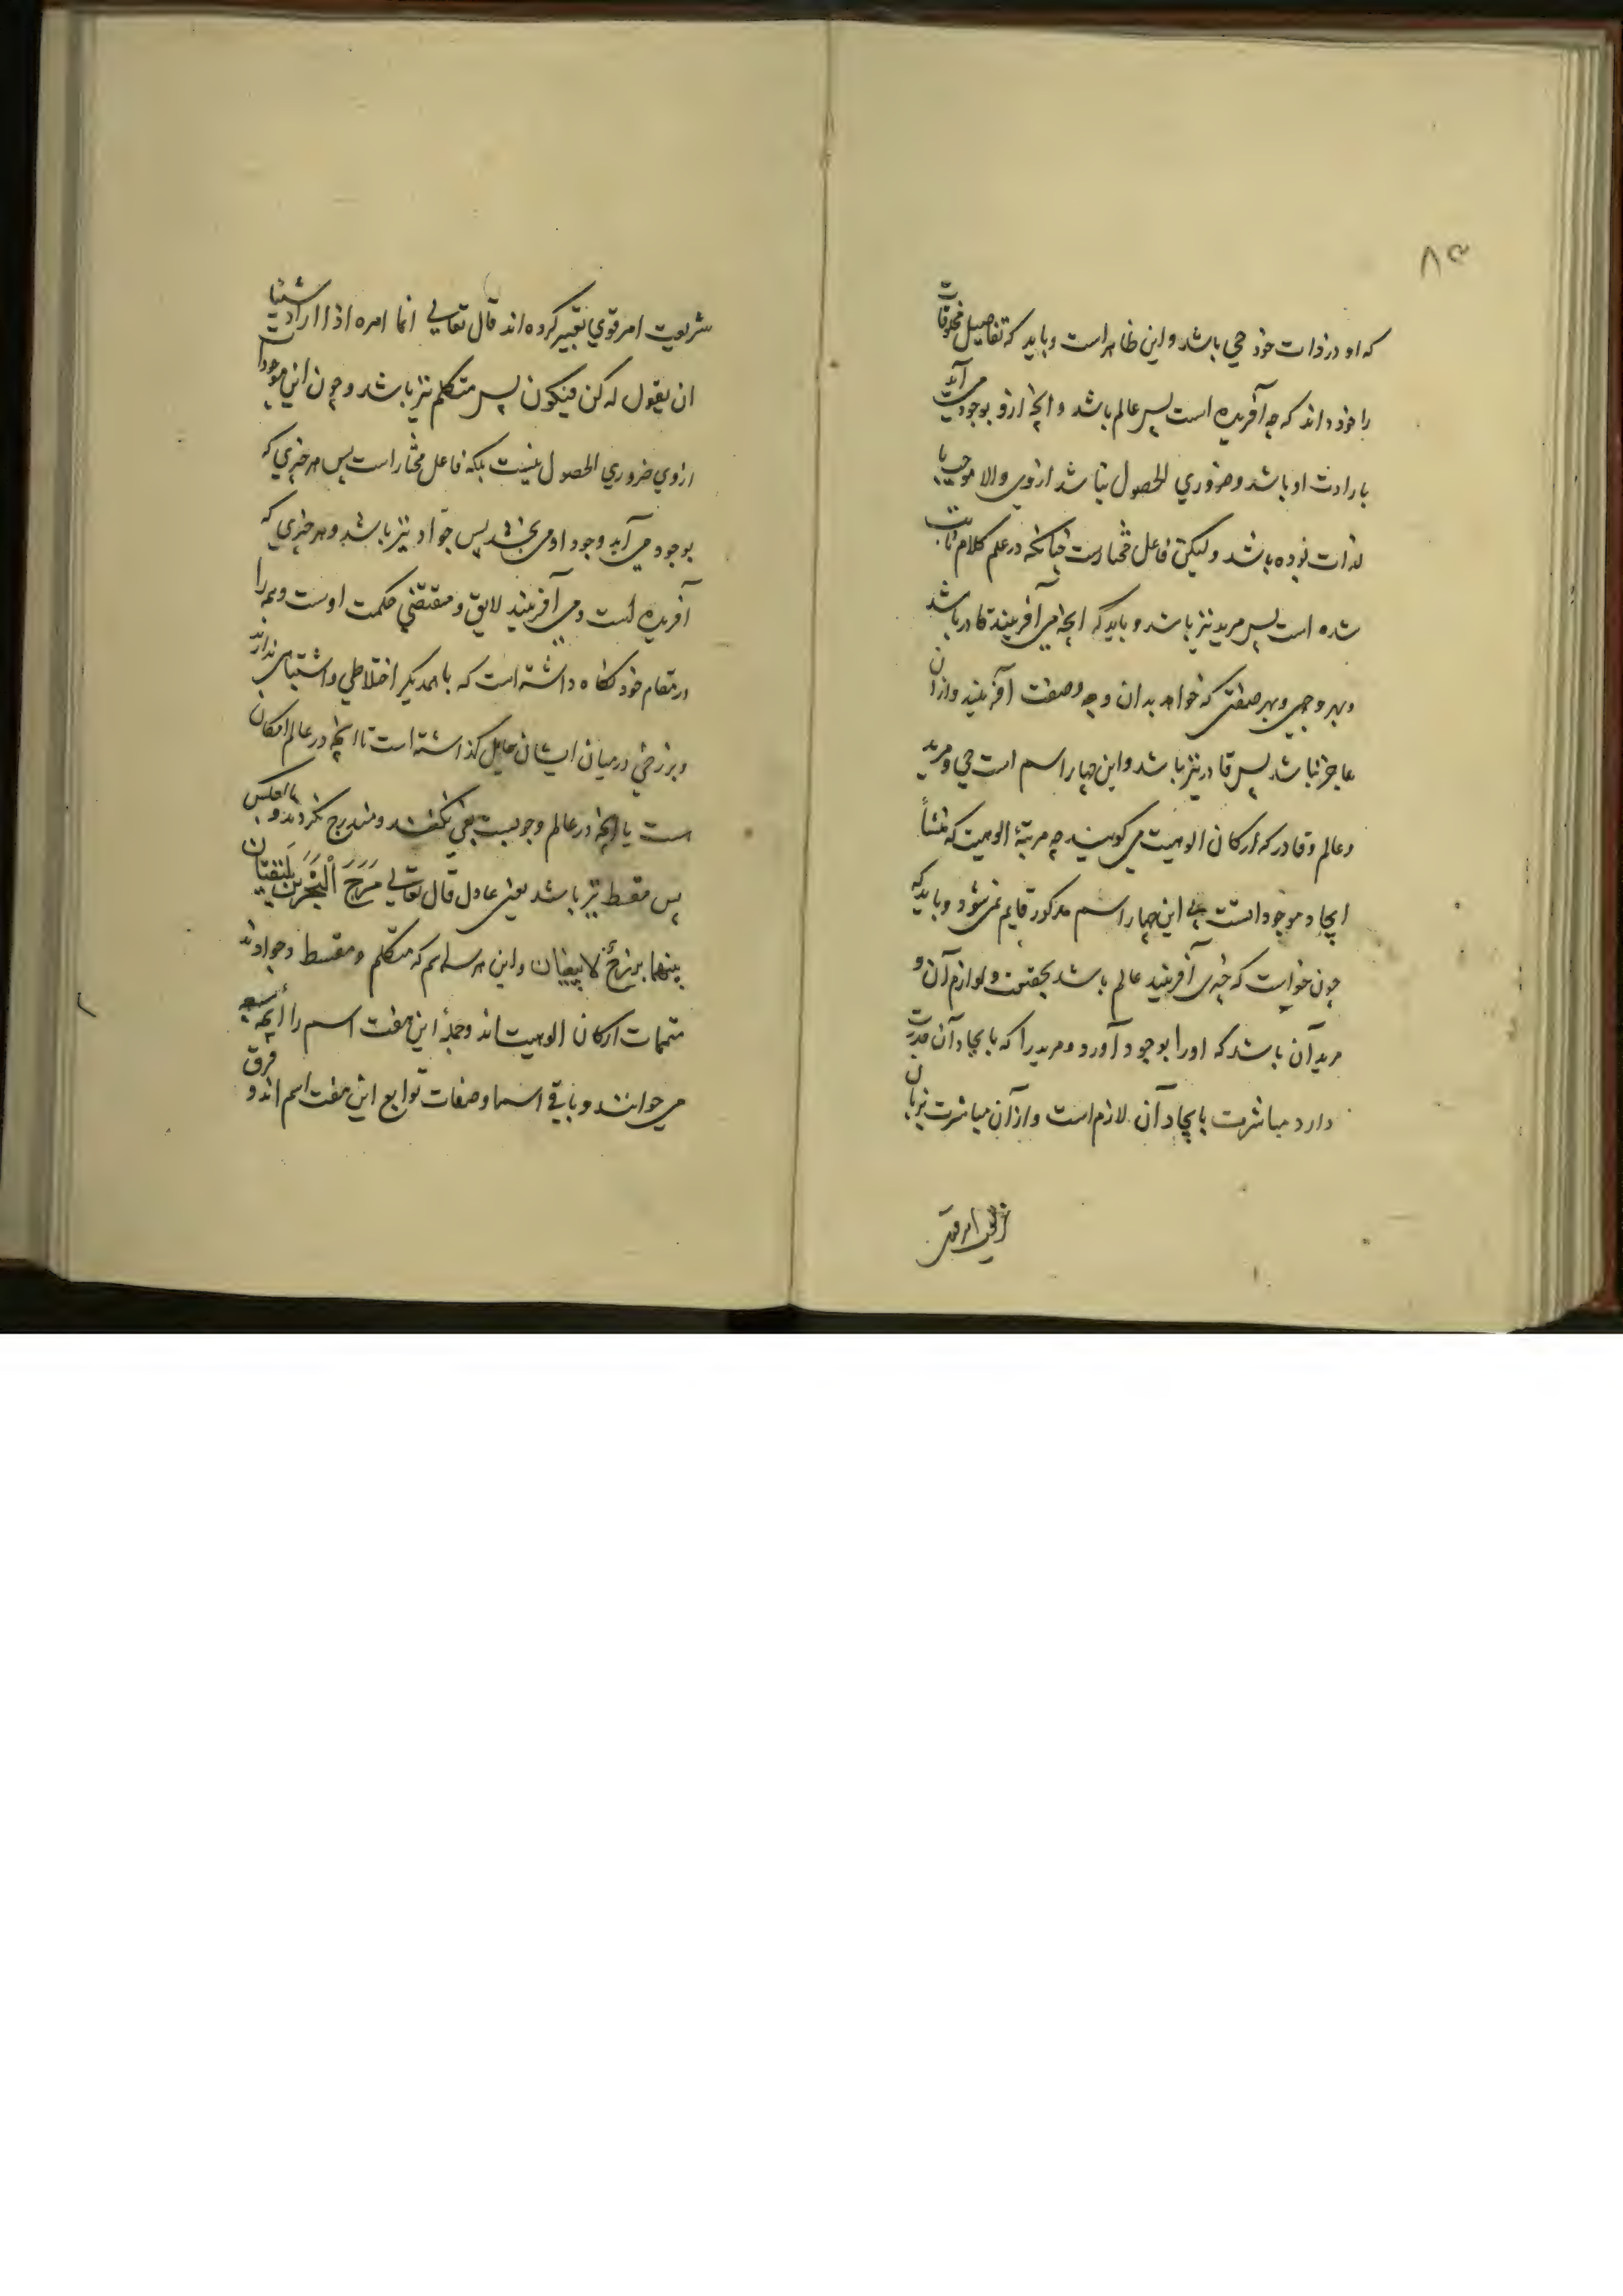 ۸۳
که او در ذات خود حی باشد و این ظاهر است و باید که تفاصیل مخلوقات
را خود داند که چه آفریده است پس عالم باشد و آنچه ازو بوجود می آید
بارادت او باشد و ضروری الحصول نباشد ازوی والا موجب با
لذات بوده باشد و لیکن فاعل مختارست چنانکه در علم کلام ثابت
شده است پس مرید نیز باشد و باید که آنچه می آفریند قادر باشد
و بهر وجهی و بهر صفتی که خواهد بدان وجه و صفت آفریند و ازان
عاجز نباشد پس قادر نیز باشد و این چهار اسم است حی و مرید
و عالم و قادر که ارکان الوهیت می کویند چه مرتبهٔ الوهیت که منشأ
ایجاد موجوداتست بی این چهار اسم مذکور قایم نمی شود و باید که
چون خواست که چیزی آفریند عالم باشد بحقیقت و لوازم آن و
مرید آن باشد که اورا بوجود آورد و مرید را که بایجاد آن قدرت
دارد مباشرت بایجاد آن لازم است و از آن مباشرت بزبان
شریعت امر قوی
شریعت امر قوی تعبیر کرده اند قال تعالی انما امره اذا اراد شیئا
ان یقول له کن فیکون پس متکلم نیز باشد و چون این موجودات
ازوی ضروری الحصول نیست بلکه فاعل مختار است پس هر چیزی که
بوجود می آید وجود او می بخشد پس جواد نیز باشد و هر چیزی که
آفریده است و می آفریند لایق و مقتضی حکمت اوست و همه را
در مقام خود نکاه داشته است که با همدیکر اختلاطی و اشتباهی ندارند
و برزخی درمیان ایشان حایل کذاشته است تا آنچه در عالم امکان
است با آنچه در عالم وجوبست بغی نکنند و مندرج نکردند و بالعکس
پس مقسط نیز باشد یعنی عادل قال تعالی مَرَجَ الْبَحْرَیْنِ یَلْتَقِیَان
بینهما برزخٌ لا یبغیان و این هر سه اسم که متکلم و مقسط و جوادند
متممات ارکان الوهیت اند و جملهٔ این هفت اسم را ایمهٔ سبعه
می خوانند و باقی اسما و صفات توابع این هفت اسم اند و فرق